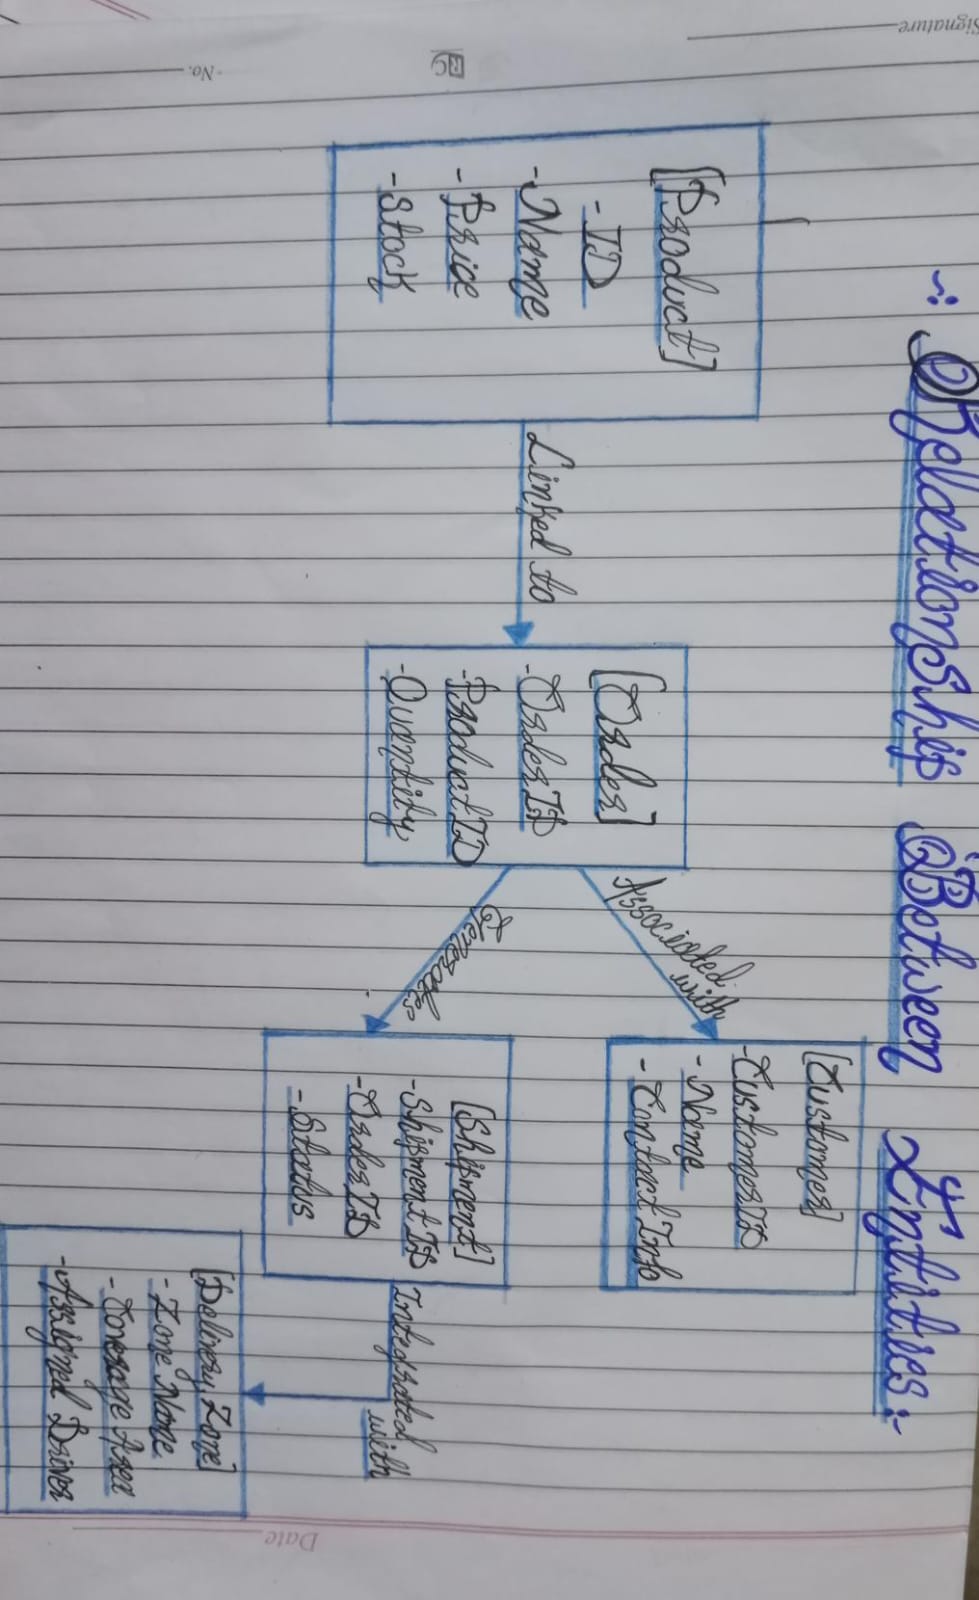 Signature
No.
RC
-: Relationship Between Entities:-
[Product]
- ID
- Name
- Price
- Stock
Linked to
[Order]
- Order ID
- Product ID
- Quantity
Associated with
Generates
[Customer]
- Customer ID
- Name
- Contact Info
[Shipment]
- Shipment ID
- Order ID
- Status
Integrated with
[Delivery Zone]
- Zone Name
- Coverage Area
- Assigned Driver
Date